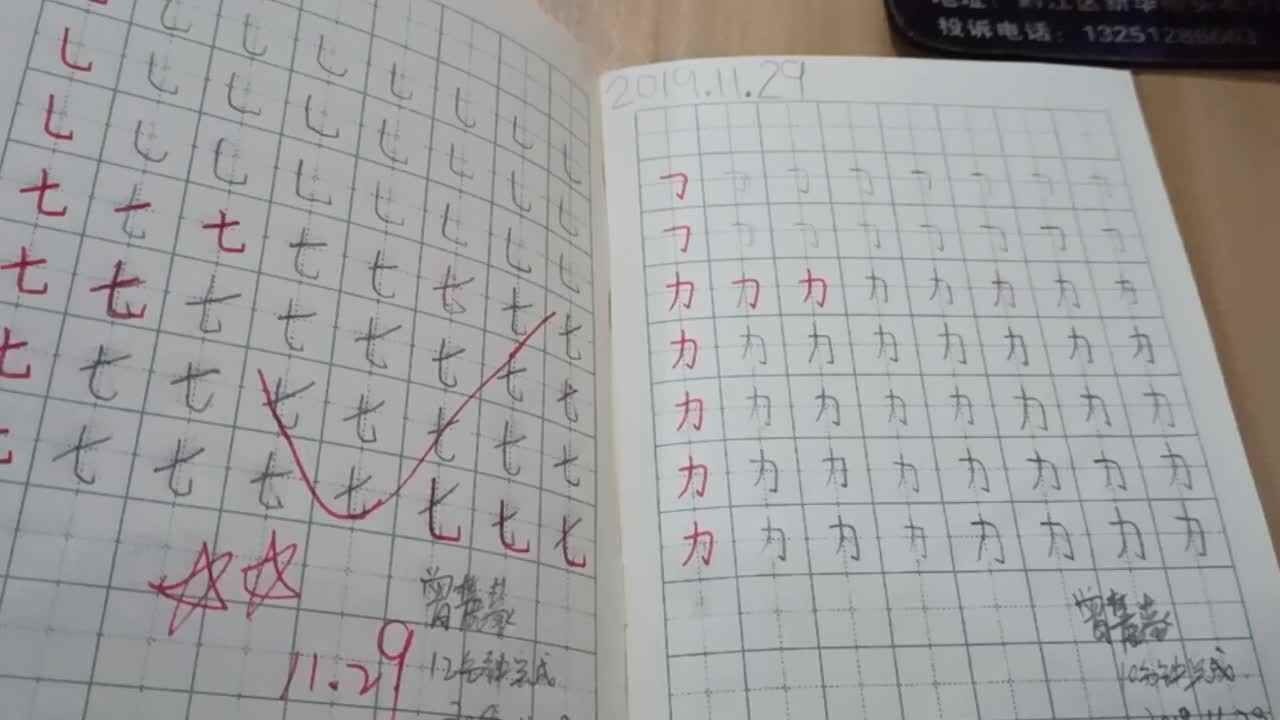 乚乚乚乚乚乚乚
乚乚乚乚乚乚乚乚
乚乚乚乚乚乚乚乚
七七七七七七七七
七七七七七七七七
七七七七七七七七
七七七七七七七
11.29
12分钟完成
2019.11.29
㇆㇆㇆㇆㇆㇆㇆㇆
㇆㇆㇆㇆㇆㇆㇆㇆
力力力力力力力力
力力力力力力力力
力力力力力力力力
力力力力力力力力
力力力力力力力力
10分钟完成
投诉电话：